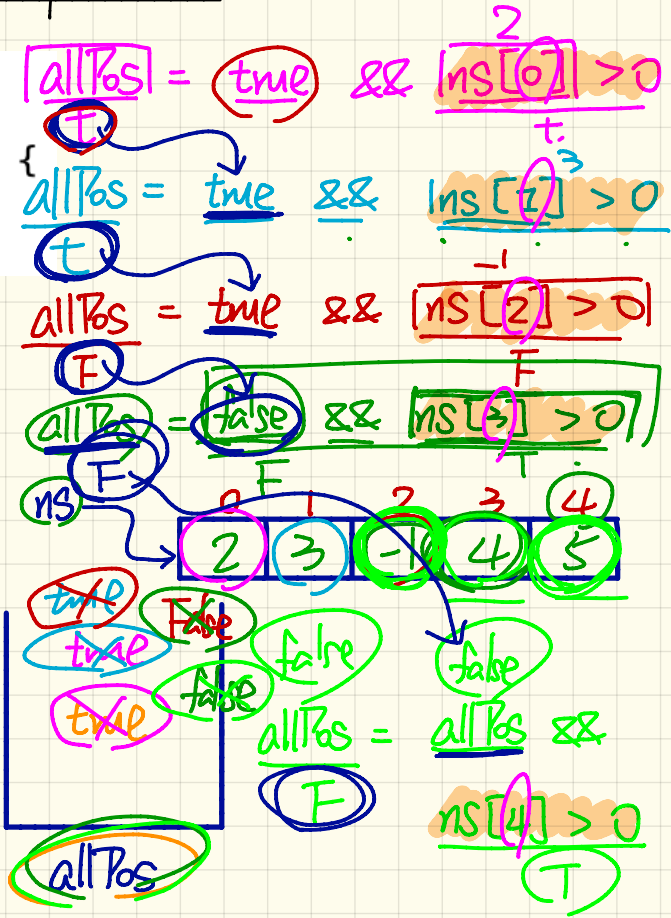 2
allPos = true && ns[0] > 0
t t.
{
3
allPos = true && ns[1] > 0
t
-1
allPos = true && ns[2] > 0
F F
allPos = false && ns[3] > 0
F F T
ns 0 1 2 3 4
2 3 -1 4 5
true False
true false false false
true
allPos = allPos &&
F
ns[4] > 0
allPos T